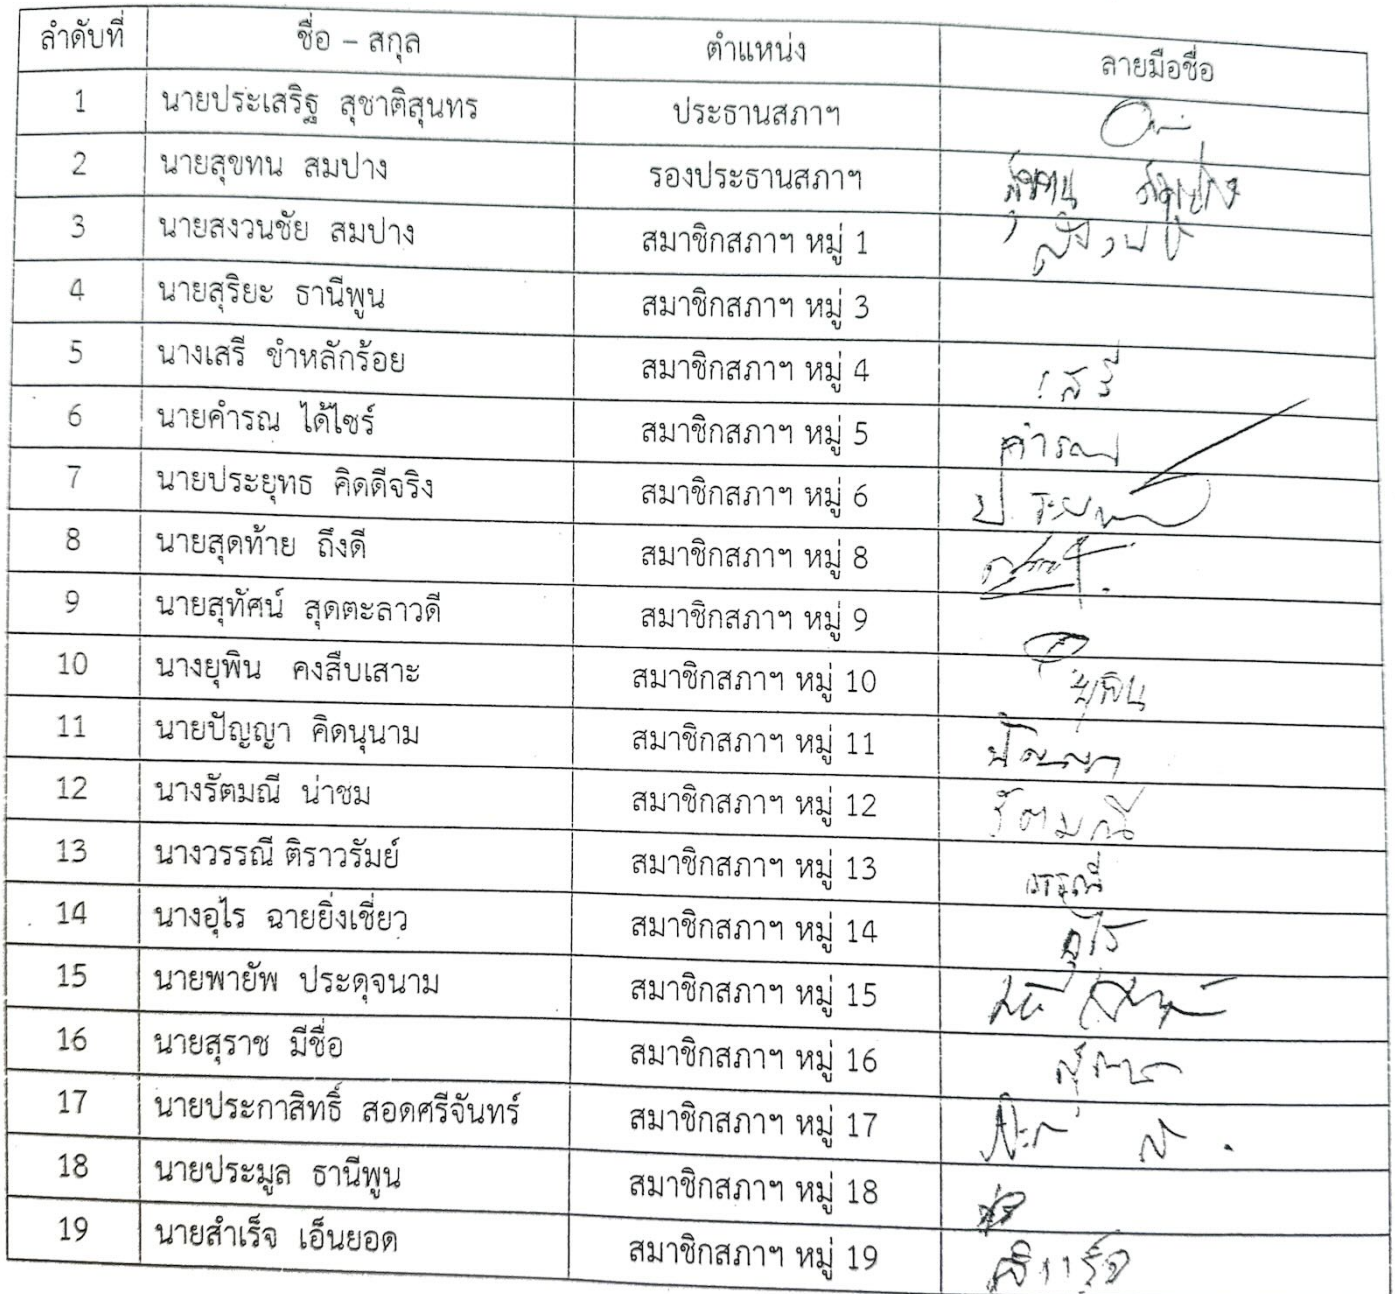 ลำดับที่ ชื่อ – สกุล ตำแหน่ง ลายมือชื่อ
1 นายประเสริฐ สุชาติสุนทร ประธานสภาฯ
2 นายสุขทน สมปาง รองประธานสภาฯ สุขทน สมปาง
3 นายสงวนชัย สมปาง สมาชิกสภาฯ หมู่ 1
4 นายสุริยะ ธานีพูน สมาชิกสภาฯ หมู่ 3
5 นางเสรี ขำหลักร้อย สมาชิกสภาฯ หมู่ 4 เสรี
6 นายคำรณ ได้ไซร์ สมาชิกสภาฯ หมู่ 5 คำรณ
7 นายประยุทธ คิดดีจริง สมาชิกสภาฯ หมู่ 6
8 นายสุดท้าย ถึงดี สมาชิกสภาฯ หมู่ 8
9 นายสุทัศน์ สุดตะลาวดี สมาชิกสภาฯ หมู่ 9
10 นางยุพิน คงสืบเสาะ สมาชิกสภาฯ หมู่ 10 ยุพิน
11 นายปัญญา คิดนุนาม สมาชิกสภาฯ หมู่ 11 ปัญญา
12 นางรัตมณี น่าชม สมาชิกสภาฯ หมู่ 12 รัตมณี
13 นางวรรณี ติราวรัมย์ สมาชิกสภาฯ หมู่ 13 วรรณี
14 นางอุไร ฉายยิ่งเชี่ยว สมาชิกสภาฯ หมู่ 14 อุไร
15 นายพายัพ ประดุจนาม สมาชิกสภาฯ หมู่ 15
16 นายสุราช มีชื่อ สมาชิกสภาฯ หมู่ 16
17 นายประกาสิทธิ์ สอดศรีจันทร์ สมาชิกสภาฯ หมู่ 17
18 นายประมูล ธานีพูน สมาชิกสภาฯ หมู่ 18
19 นายสำเร็จ เอ็นยอด สมาชิกสภาฯ หมู่ 19 สำเร็จ